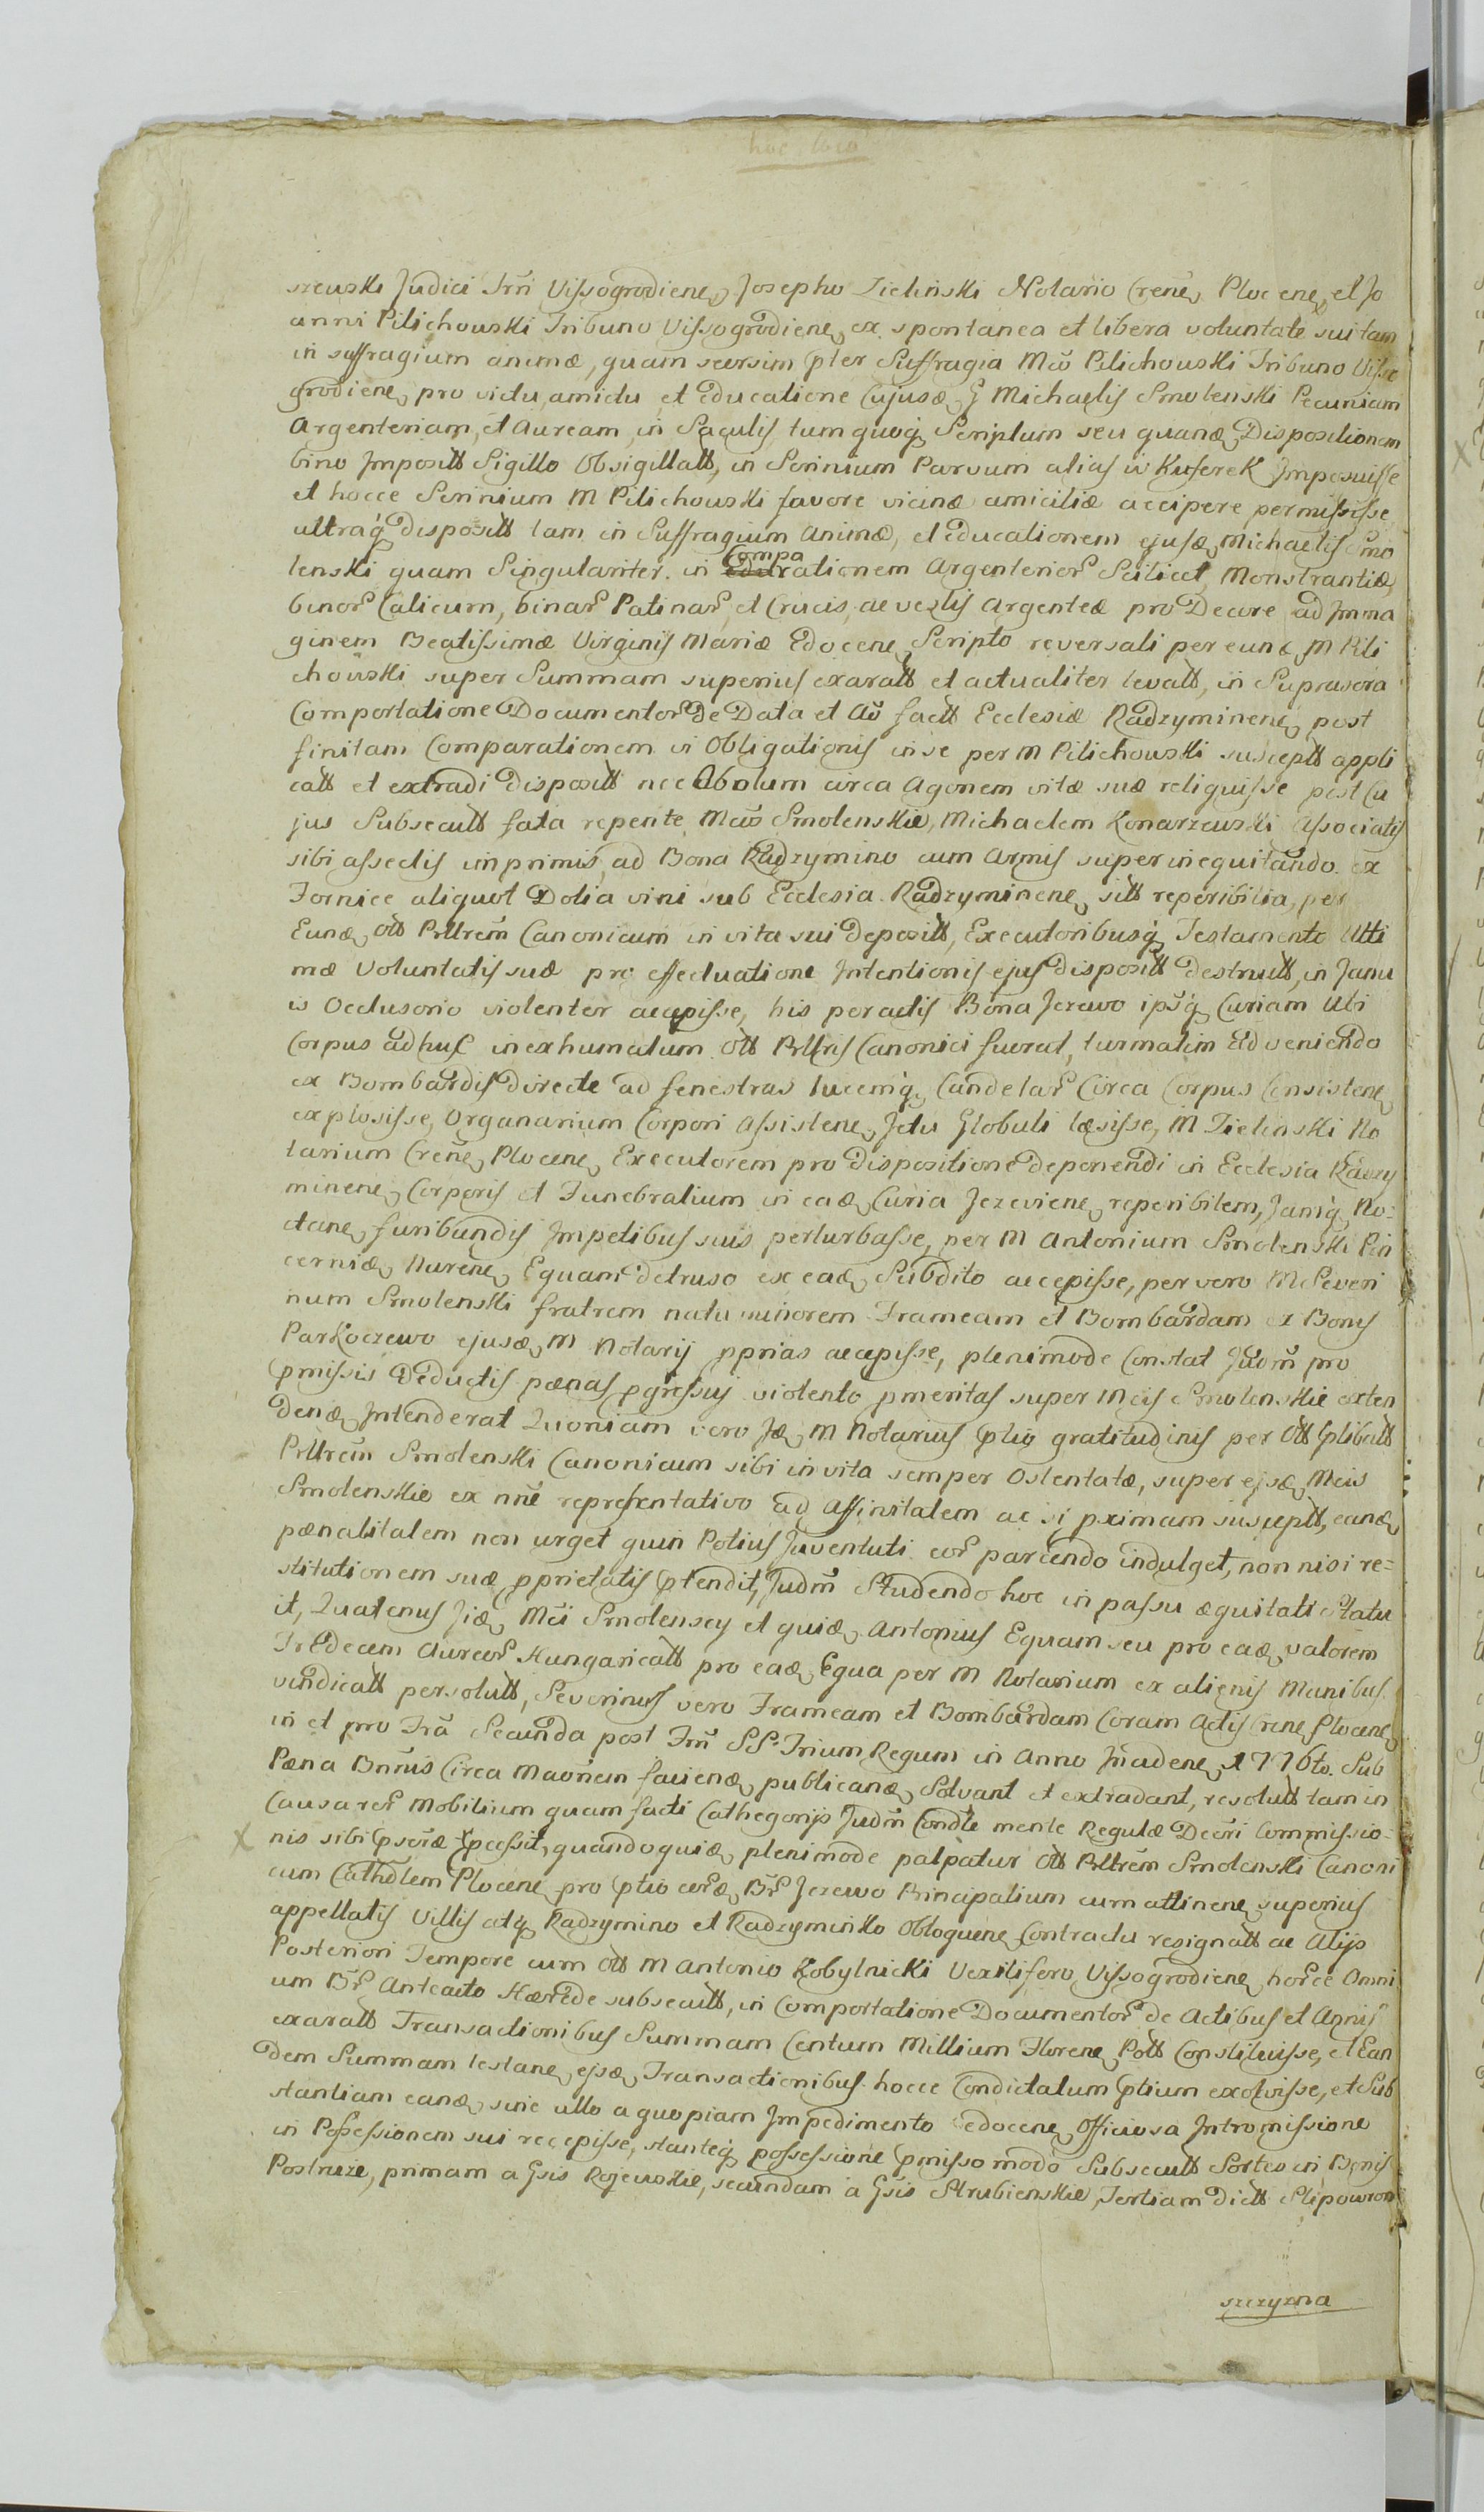 hoc loco
szewski Judici Trri Vissogrodiene, Josepho Zielinski Notario Crene, Plocene, et Jo
anni Pilichowski Tribuno Vissogrodiene, ex spontanea et libera voluntate sui tam
in suffragium animæ, quam seorsim pter Suffragia Mco Pilichowski Tribuno Visso
grodiene, pro victu, amictu et educatione Cujusd, G Michaelis Smolenski Pecuniam
Argenteriam, et Auream, in Saculis, tum quoq Scriptum seu quand, Dispositionem
bino Impositt Sigillo Obsigillatt, in Scrinium Parvum alias w Kuferek Imposuisse
et hocce Scrinium M Pilichowski favore vicinæ amicitiæ accipere permisisse
ultraq dispositt tam in Suffragium Animæ, et educationem ejusd, Michaelis Smo
lenski quam Singulariter in Comparationem Argenterior Scilicet Monstrantiæ,
binor Calicum, binar Patinar, et Crucis, ac vestis Argenteæ pro Decore ad Imma
ginem Beatissimæ Virginis Mariæ Edocene, Scripto reversali per eund, M Pili
chowski super Summam superius exaratt et actualiter levatt, in Suprascra
Comportatione Documentor De Data et Au factt Ecclesiæ Radzyminene, post
finitam Comparationem vi Obligationis in se per M Pilichowski susceptt appli
catt et extradi dispositt nec Obolum circa Agonem vitæ suæ reliquisse post Cu
jus Subsecutt fata repente Mcos Smolenskie, Michaelem Konarzewski Associatis
sibi asseclis inprimis, ad Bona Radzymino cum Armis superinequitando ex
Fornice aliquot Dolia vini sub Ecclesia Radzyminene, sitt reperibilia, per
Eund, Ott Pttrem Canonicum in vita sui depositt, Executoribusq Testamento Ulti
mæ Voluntatis suæ pro effectuatione Intentionis ejus disposiitt destrutt, in Janu
is Occlusorio violenter accepisse, his peractis Bona Jezewo ipsq Curiam Ubi
Corpus adhuc inexhumatum Ott Pttris Canonici fuerat, turmatim Adveniendo
ex Bombardis directe ad fenestras lucemq Candelar Circa Corpus Consistene,
explosisse, Organarium Corpori Assistene, Jctu Globuli læsisse, M Zielinski No
tarium Crene, Plocene, Executorem pro dispositione deponendi in Ecclesia Radzy
minene, Corporis et Funebralium in ead, Curia Jezeviene, reperibilem, Jamq No-
ctene, furibundis Impetibus suis perturbasse, per M Antonium Smolenski Pin
cernid, Nurene, Equam detruso ex ead, Subdito accepisse, per vero M Severi
num Smolenski fratrem natu minorem Frameam et Bombardam ex Bonis
Parkoczewo ejusd, M Notarij pprias accepisse, plenimode Constat Judm pro
pmissis Deductis pænas pgressus violento pmeritas super Mcis Smolenskie exten
dend, Intenderat Quoniam vero Jd, M Notarius ptio gratitudinis per Ott ptibatt
Pttrem Smolenski Canonicum sibi in vita semper Ostentatæ, super ejsd, Mcis
Smolenskie ex nne representativo ad Affinitatem ac si pximam susceptt, eand,
pænalitatem non urget quin Potius Juventuti eor parcendo indulget, non nisi re-
stitutionem suæ pprietatis ptendit, Judm Studendo hoc in passu æquitati Statu
it, Quatenus Jid, Mci Smolenscy et quid, Antonius Equam seu pro ead, valorem
Tredecem Aureor Hungaricatt pro ead, Equa per M Notarium ex alienis Manibus
vindicatt persolutt, Severinus vero Frameam et Bombardam Coram Actis Crene Plocene,
in et pro Fra Secunda post Frm SS. Trium Regum in Anno Jnadene, 1776to. Sub
Pæna Bnnis Circa Maonem faciend, publicand, Solvant et extradant, resolutt tam in
Causa rer Mobilium quam facti Cathegorijs Judm Condle mente Regulæ Decri Commissio-
nis sibi pscræ pcessit, quandoquid, plenimode palpatur Ott Pttrem Smolenski Canoni
cum Cathdlem Plocene, pro ptio cerd, Br Jezewo Principalium cum attinene, superius
appellatis Villis atq Radzymino et Radzyminko Obloquene, Contractu resignatt ac Alijs
Posteriori Tempore cum Ott M Antonio Kobylnicki Vexillifero Vissogrodiene, horce Omni
um Br Anteacto Hærede subsecutt, in Comportatione Documentor de Actibus et Annis
exaratt Transactionibus Summam Centum Millium Florene, Pott Constituisse, et Ean
dem Summam testane, ejsd, Transactionibus hocce Condictatum ptium exolvisse, et Sub
stantiam eand, sine ullo a quopiam Impedimento edocene, Officiosa Intromissione
in Possessionem sui recepisse, stanteq possessione pmisso modo Subsecutt Sortes in Bonis
Postruze, primam a Gsis Rojewskie, secundam a Gsis Strubienskie, Tertiam dictt Slipowron
szczyzna